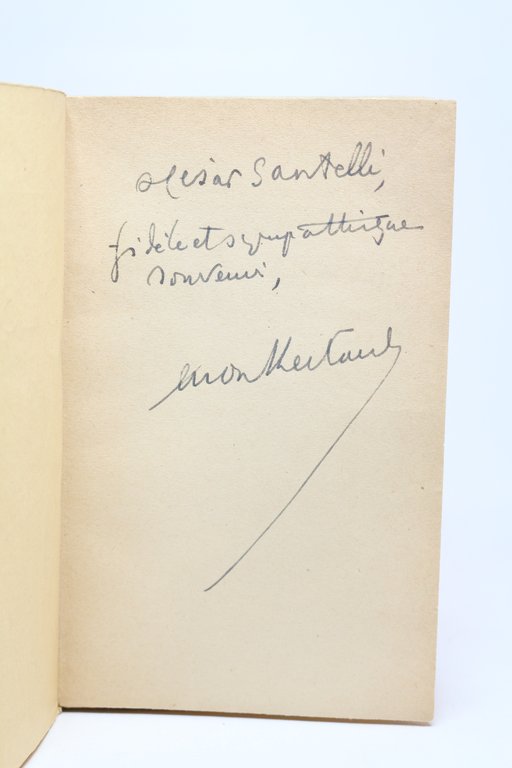 à César Santelli,
fidèle et sympathique
souvenir,
Montherlant